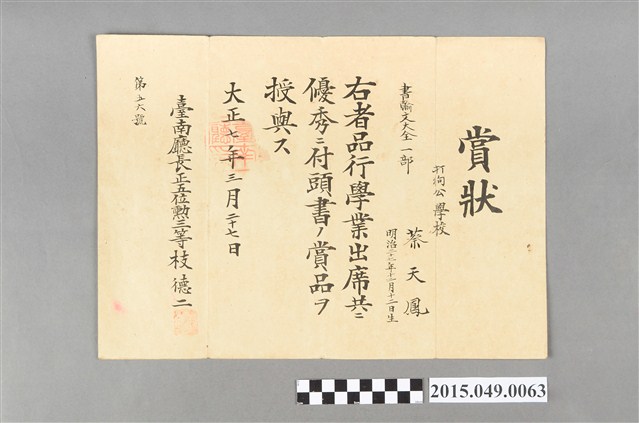 賞狀
打狗公學校
蔡天鳳
明治三十三年十二月十二日生
書翰文大全一部
右者品行學業出席共ニ
優秀ニ付頭書ノ賞品ヲ
授與ス
大正七年三月二十七日
臺南廳長正五位勲三等枝德二
第五六號
2015.049.0063